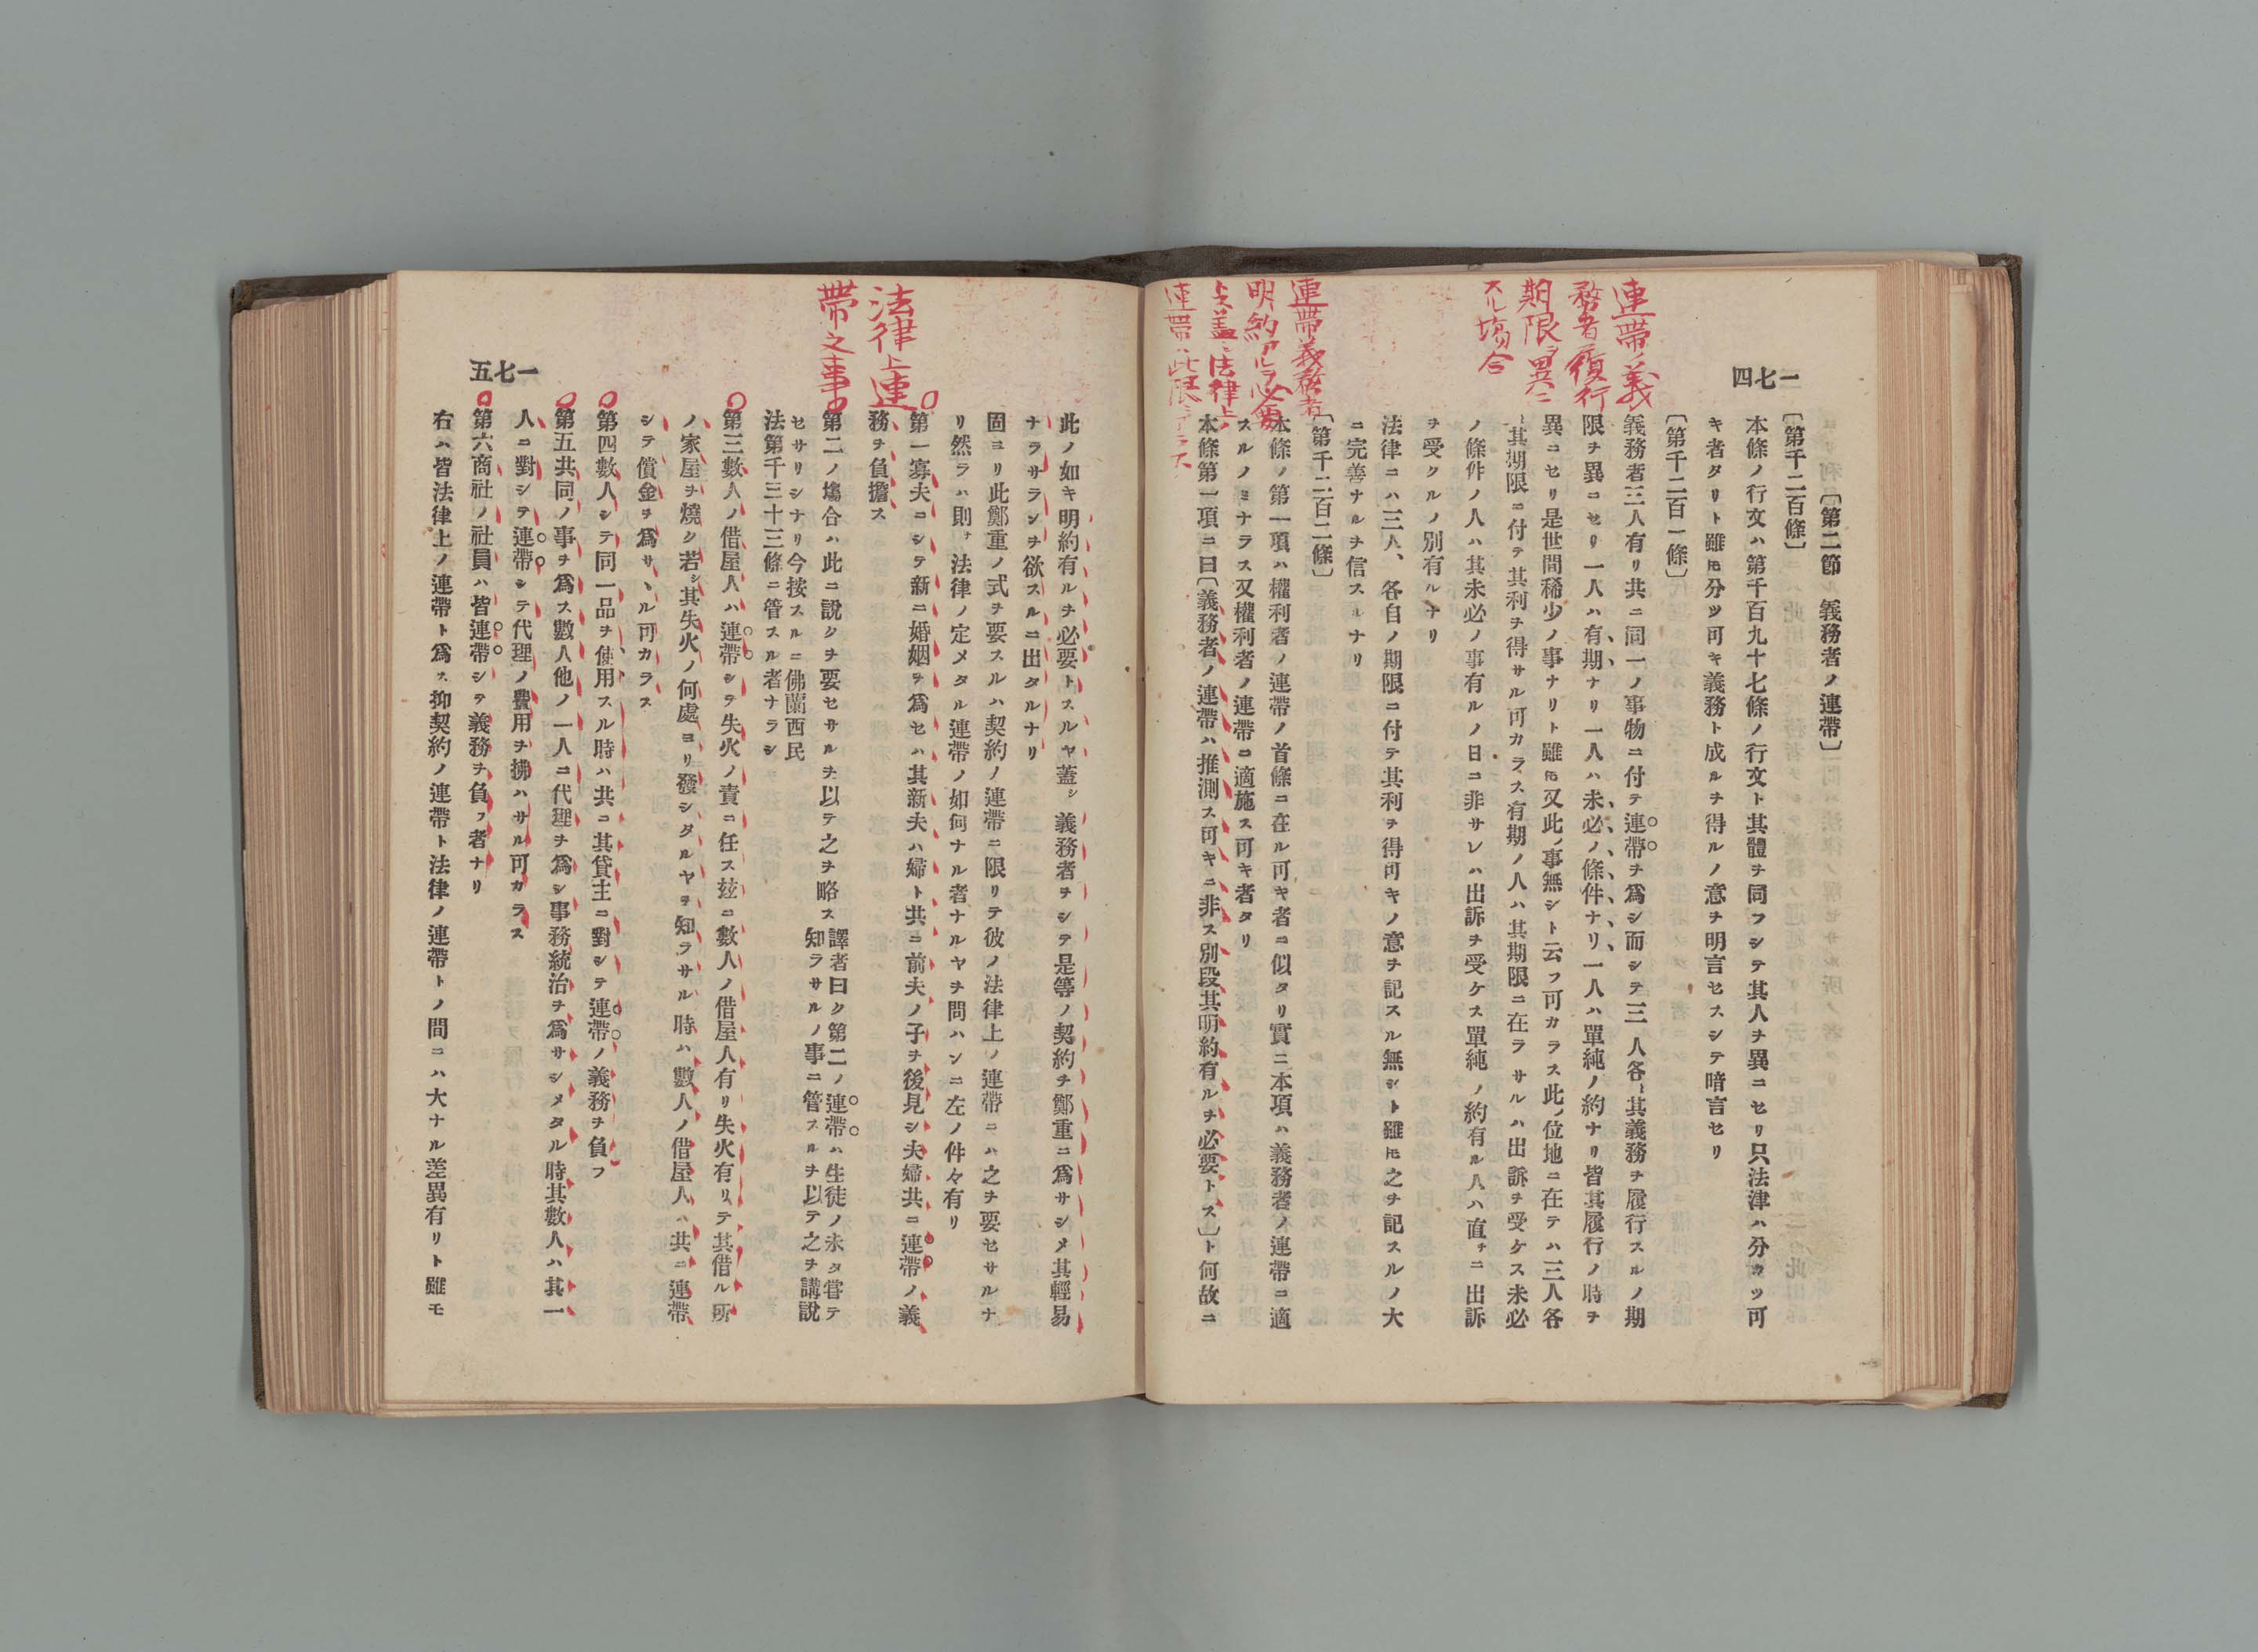 一七四
連帶ノ義
務者復行
期限ヲ異ニ
スル塲合
連帶義務者
明約アルヲ必要
トス蓋シ法律上
連帶ハ此限ニアラス
〔第二節　義務者ノ連帶〕
〔第千二百條〕
本條ノ行文ハ第千百九十七條ノ行文ト其體ヲ同フシテ其人ヲ異ニセリ只法律ハ分カツ可
キ者タリト雖𪜈分ツ可キ義務ト成ルヲ得ルノ意ヲ明言セスシテ暗言セリ
〔第千二百一條〕
義務者三人有リ共ニ同一ノ事物ニ付テ連帶ヲ爲シ而シテ三人各〻其義務ヲ履行スルノ期
限ヲ異ニセリ一人ハ有期ナリ一人ハ未必ノ條件ナリ一人ハ單純ノ約ナリ皆其履行ノ時ヲ
異ニセリ是世間稀少ノ事ナリト雖𪜈又此ノ事無シト云フ可カラス此ノ位地ニ在テハ三人各
〻其期限ニ付テ其利ヲ得サル可カラス有期ノ人ハ其期限ニ在ラサルハ出訴ヲ受ケス未必
ノ條件ノ人ハ其未必ノ事有ルノ日ニ非サレハ出訴ヲ受ケス單純ノ約有ル人ハ直チニ出訴
ヲ受クルノ別有ルナリ
法律ニハ三人、各自ノ期限ニ付テ其利ヲ得可キノ意ヲ記スル無シト雖𪜈之ヲ記スルノ大
ニ完善ナルヲ信スルナリ
〔第千二百二條〕
本條ノ第一項ハ權利者ノ連帶ノ首條ニ在ル可キ者ニ似タリ實ニ本項ハ義務者ノ連帶ニ適
スルノミナラス又權利者ノ連帶ニ適施ス可キ者タリ
本條第一項ニ曰〔義務者ノ連帶ハ推測ス可キニ非ス別段其明約有ルヲ必要トス〕ト何故ニ
一七五
法律上連
帶之事
此ノ如キ明約有ルヲ必要トスルヤ蓋シ義務者ヲシテ是等ノ契約ヲ鄭重ニ爲サシメ其輕易
ナラサランヲ欲スルニ出タルナリ
固ヨリ此鄭重ノ式ヲ要スルハ契約ノ連帶ニ限リテ彼ノ法律上ノ連帶ニハ之ヲ要セサルナ
リ然ラハ則チ法律ノ定メタル連帶ノ如何ナル者ナルヤヲ問ハンニ左ノ件々有リ
第一寡夫ニシテ新ニ婚姻ヲ爲セハ其新夫ハ婦ト共ニ前夫ノ子ヲ後見シ夫婦共ニ連帶ノ義
務ヲ負擔ス
第二ノ塲合ハ此ニ說クヲ要セサルヲ以テ之ヲ略ス譯者曰ク第二ノ連帶ハ生徒ノ未タ嘗テ
知ラサルノ事ニ管スルヲ以テ之ヲ講說
セサリシナリ今按スルニ佛蘭西民
法第千三十三條ニ管スル者ナラシ
第三數人ノ借屋人ハ連帶シテ失火ノ責ニ任ス玆ニ數人ノ借屋人有リ失火有リテ其借ル所
ノ家屋ヲ燒ク若シ其失火ノ何處ヨリ發シタルヤヲ知ラサル時ハ數人ノ借屋人ハ共ニ連帶
シテ償金ヲ爲サヽル可カラス
第四數人シテ同一品ヲ使用スル時ハ共ニ其貸主ニ對シテ連帶ノ義務ヲ負フ
第五共同ノ事ヲ爲ス數人他ノ一人ニ代理ヲ爲シ事務統治ヲ爲サシメタル時其數人ハ其一
人ニ對シテ連帶シテ代理ノ費用ヲ拂ハサル可カラス
第六商社ノ社員ハ皆連帶シテ義務ヲ負フ者ナリ
右ハ皆法律上ノ連帶ト爲ス抑契約ノ連帶ト法律ノ連帶トノ間ニハ大ナル差異有リト雖モ